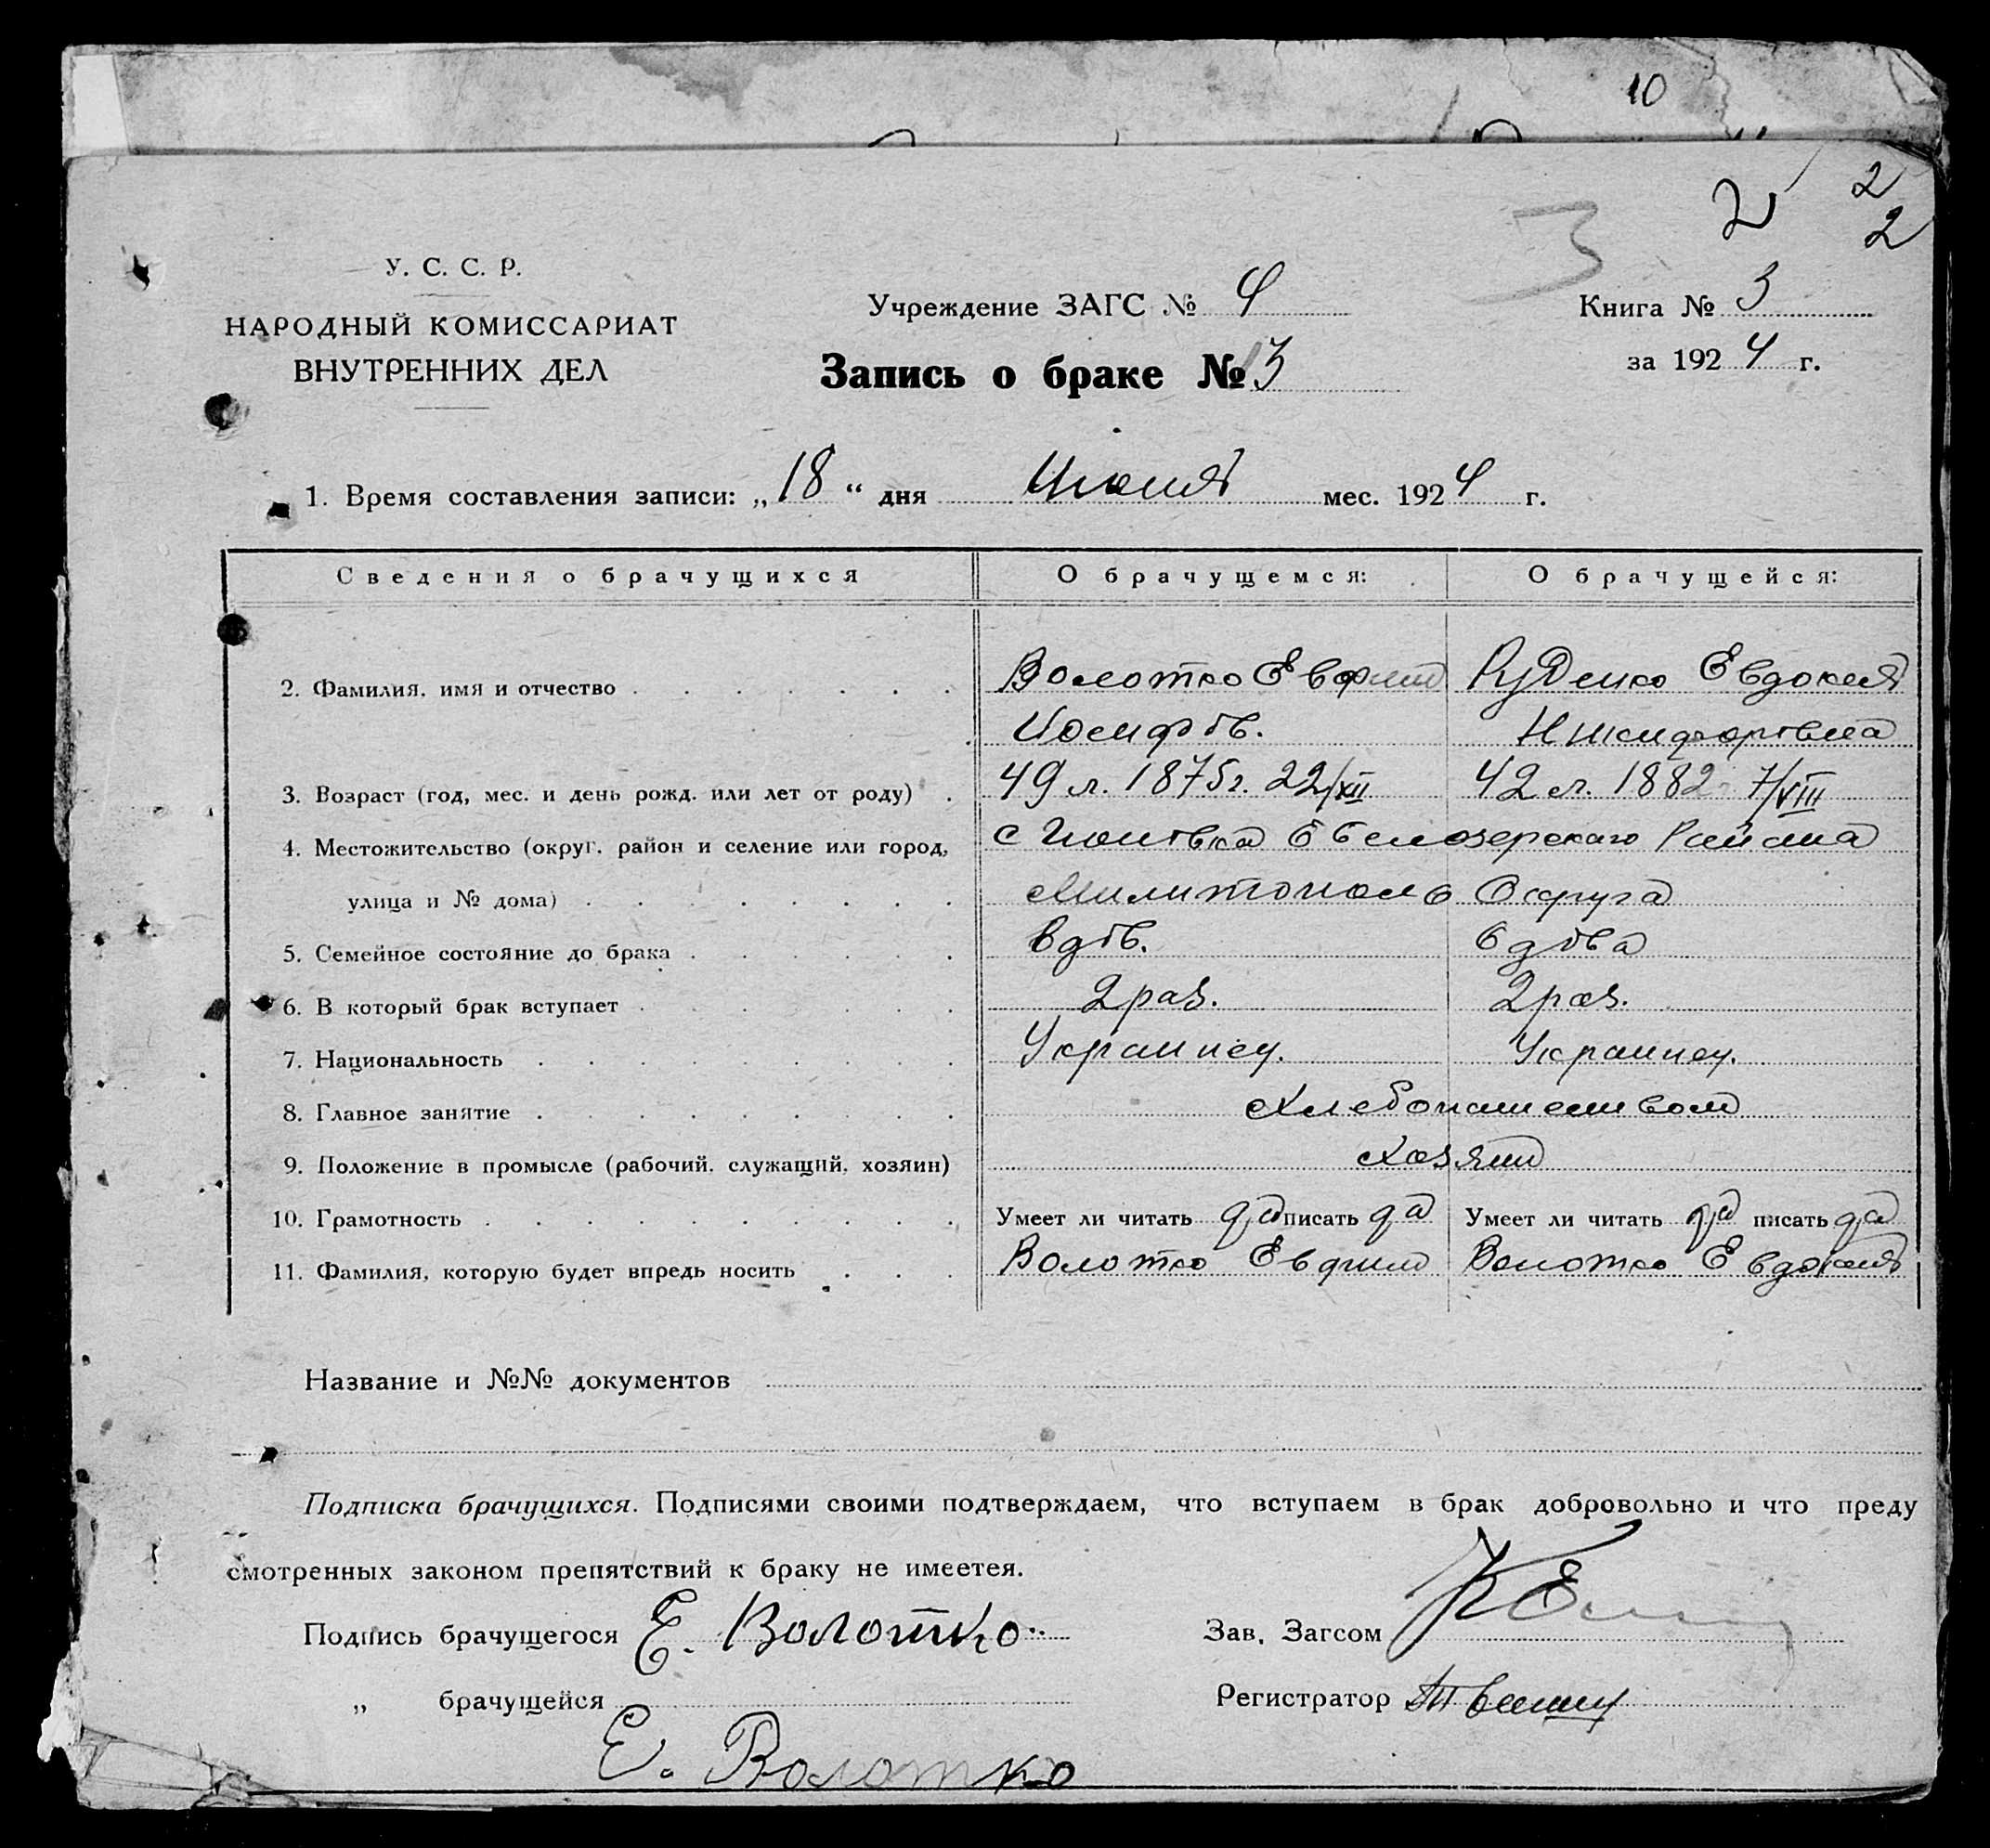 10
2
2
2
3
У. С. С. Р.
НАРОДНЫЙ КОМИССАРИАТ
ВНУТРЕННИХ ДЕЛ
Учреждение ЗАГС № 4
Книга № 3
Запись о браке № 3
за 1924 г.
1. Время составления записи: „18“ дня мес. 1924 г.
Сведения о брачущихся О брачущемся: О брачущейся:
2. Фамилия, имя и отчество Волотко Евфим Руденко Евдокия
Иосифов. Никифоровна
3. Возраст (год, мес. и день рожд. или лет от роду) 49 л. 1875г. 22/XII 42 л. 1882 7/VIII
4. Местожительство (округ, район и селение или город, с Белозерскаго Района
улица и № дома) Милитополь Округа
5. Семейное состояние до брака вдов. вдова
6. В который брак вступает 2 раз. 2 раз.
7. Национальность Украинец. Украинец.
8. Главное занятие Хлебопашеством
9. Положение в промысле (рабочий, служащий, хозяин) Хозяин
10. Грамотность Умеет ли читать да писать да Умеет ли читать да писать да
11. Фамилия, которую будет впредь носить Волотко Евфим Волотко Евдокия
Название и №№ документов
Подписка брачущихся. Подписями своими подтверждаем, что вступаем в брак добровольно и что преду
смотренных законом препятствий к браку не имеетея.
Подпись брачущегося Е. Волотко Зав. Загсом
„ брачущейся Регистратор
Е. Волотко